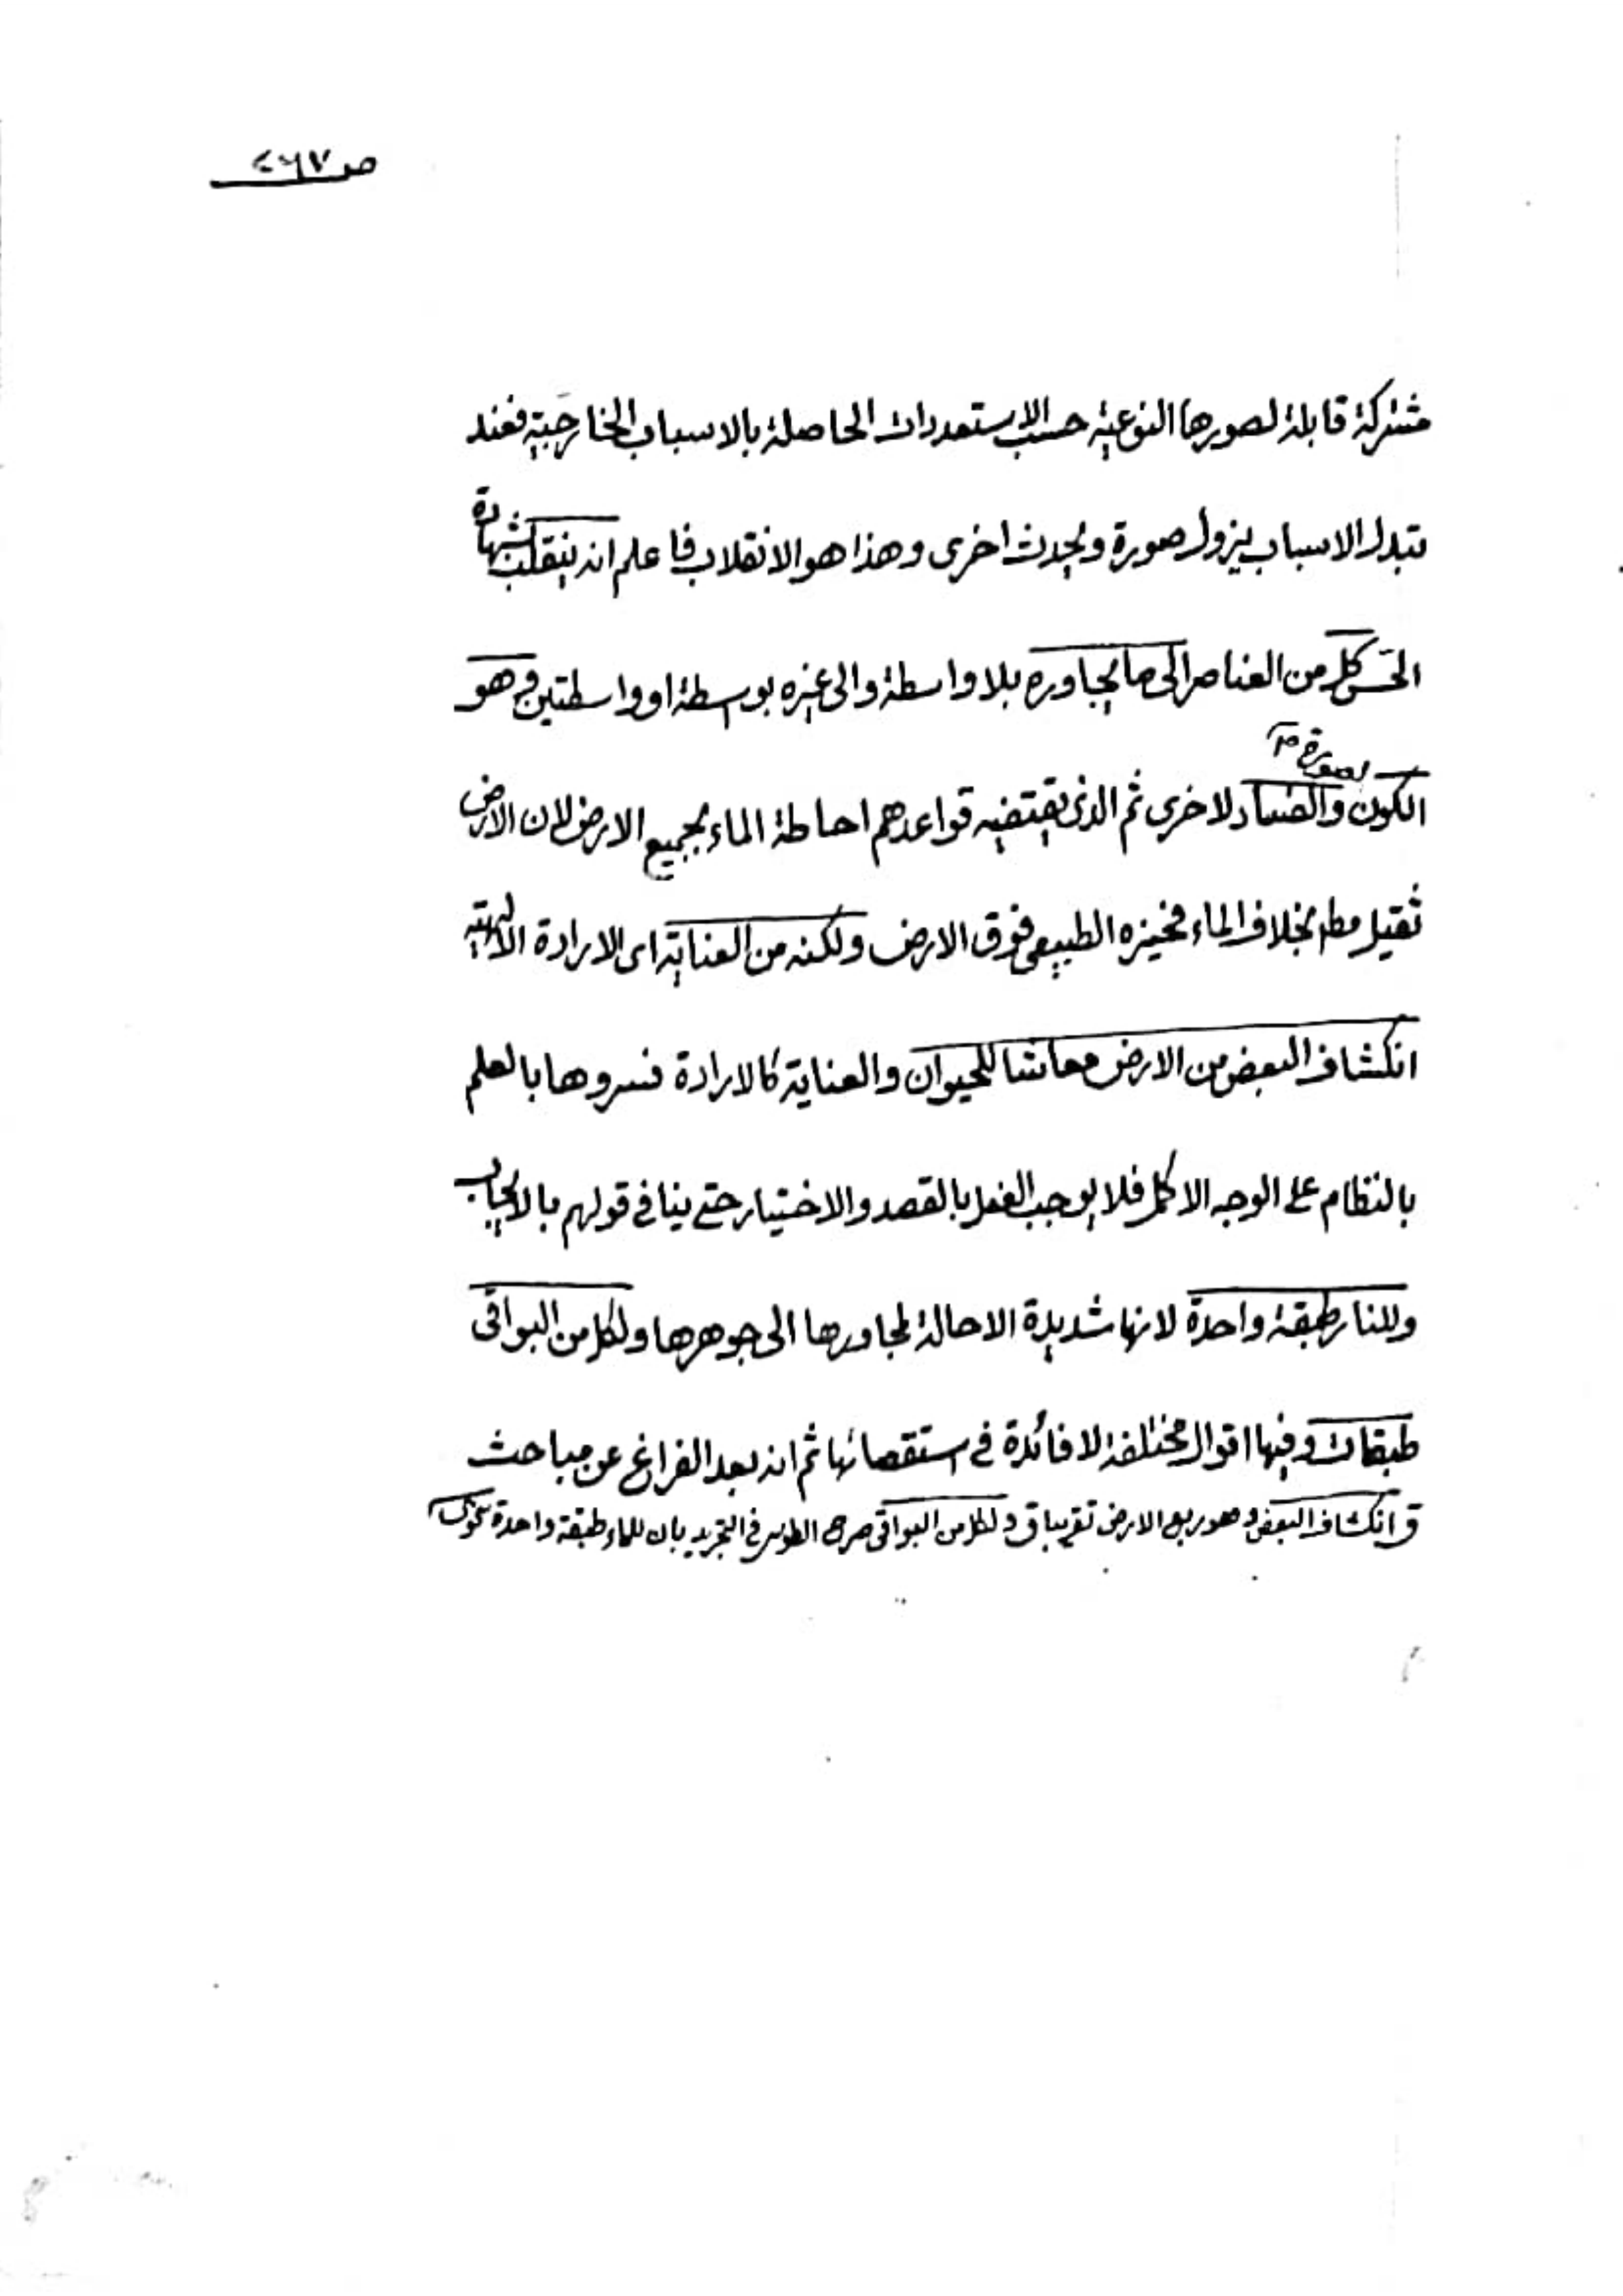 ص ٤٦٧
مشتركة قابلة لصورها النوعية حسب الاستعدادات الحاصلة بالاسباب الخارجية فعند
تبدل الاسباب يزول صورة ويحدث اخرى وهذا هو الانقلاب فاعلم انه ينقلب بشهادة
الحسّ كل من العناصر الى ما يجاوره بلا واسطة والى غيره بوسطة او واسطتين وهو
لصورة
الكون والفساد لاخرى ثم الذى يقتضيه قواعدهم احاطة الماء بجميع الارض لان الارض
ثقيل مطم بخلاف الماء فحيزه الطبيعى فوق الارض ولكنه من العناية اى الارادة الالهية
انكشاف البعض من الارض معاشا للحيوان والعناية كالارادة فسروها بالعلم
بالنظام على الوجه الاكمل فلا يوجب الفعل بالقصد والاختيار حتى ينافى قولهم بالايجاب
وللنار طبقة واحدة لانها شديدة الاحالة لمجاورها الى جوهرها ولكل من البواقى
طبقات وفيها اقوال مختلفة لا فائدة فى استقصائها ثم انه بعد الفراغ عن مباحث
ق انكشاف البعض وهو ربع الارض تقريبا ق ولكل من البواقى صرح الطوسى فى التجريد بان للماء طبقة واحدة